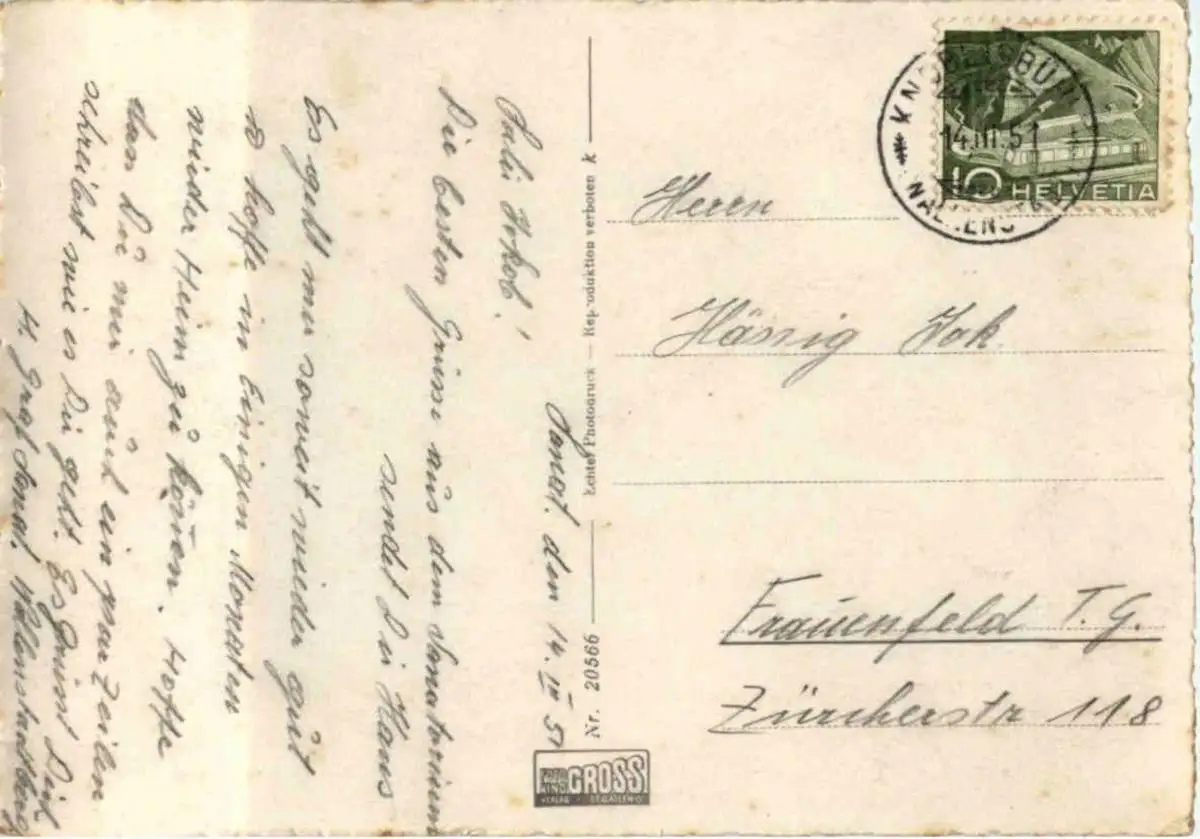 Sanat. den 14. III 51
Salü Jokob!
Die besten Grüsse aus dem Sanatorium
sendet Dir Hans
Es geht mir soweit wieder gut
hoffe in Einigen Monaten
wieder Heim zu können. Hoffe
das Du mir auch ein par Zeilen
schreibst wie es Dir geht. Es Grüsst Dich
H. Graf Sanat. Wallenstadtberg
Nr. 20566
Echter Photodruck — Reproduktion verboten k
FOTO
GROSS
VERLAG ST. GALLEN
KNOBLISBÜHL
14.III.51
10 HELVETIA
Herrn
Hässig Jok.
Frauenfeld T.G.
Zürcherstr 118